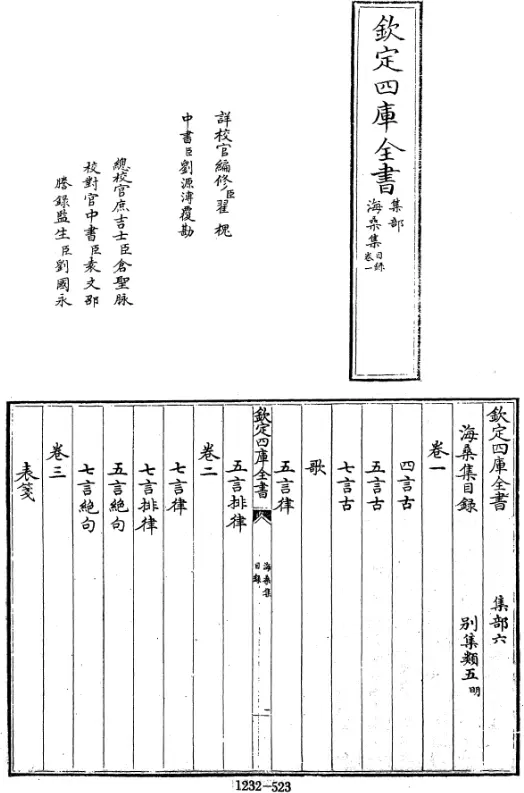 欽定四庫全書
集部
海桑集目錄
卷一
詳校官編修臣翟槐
中書臣劉源溥覆勘
總校官庶吉士臣倉聖脉
校對官中書臣袁文邵
謄錄監生臣劉國永
欽定四庫全書 集部六
海桑集目錄 別集類五明
卷一
四言古
五言古
七言古
歌
五言律
欽定四庫全書
海桑集
目錄
一
五言排律
卷二
七言律
七言排律
五言絶句
七言絶句
卷三
表箋
1232-523